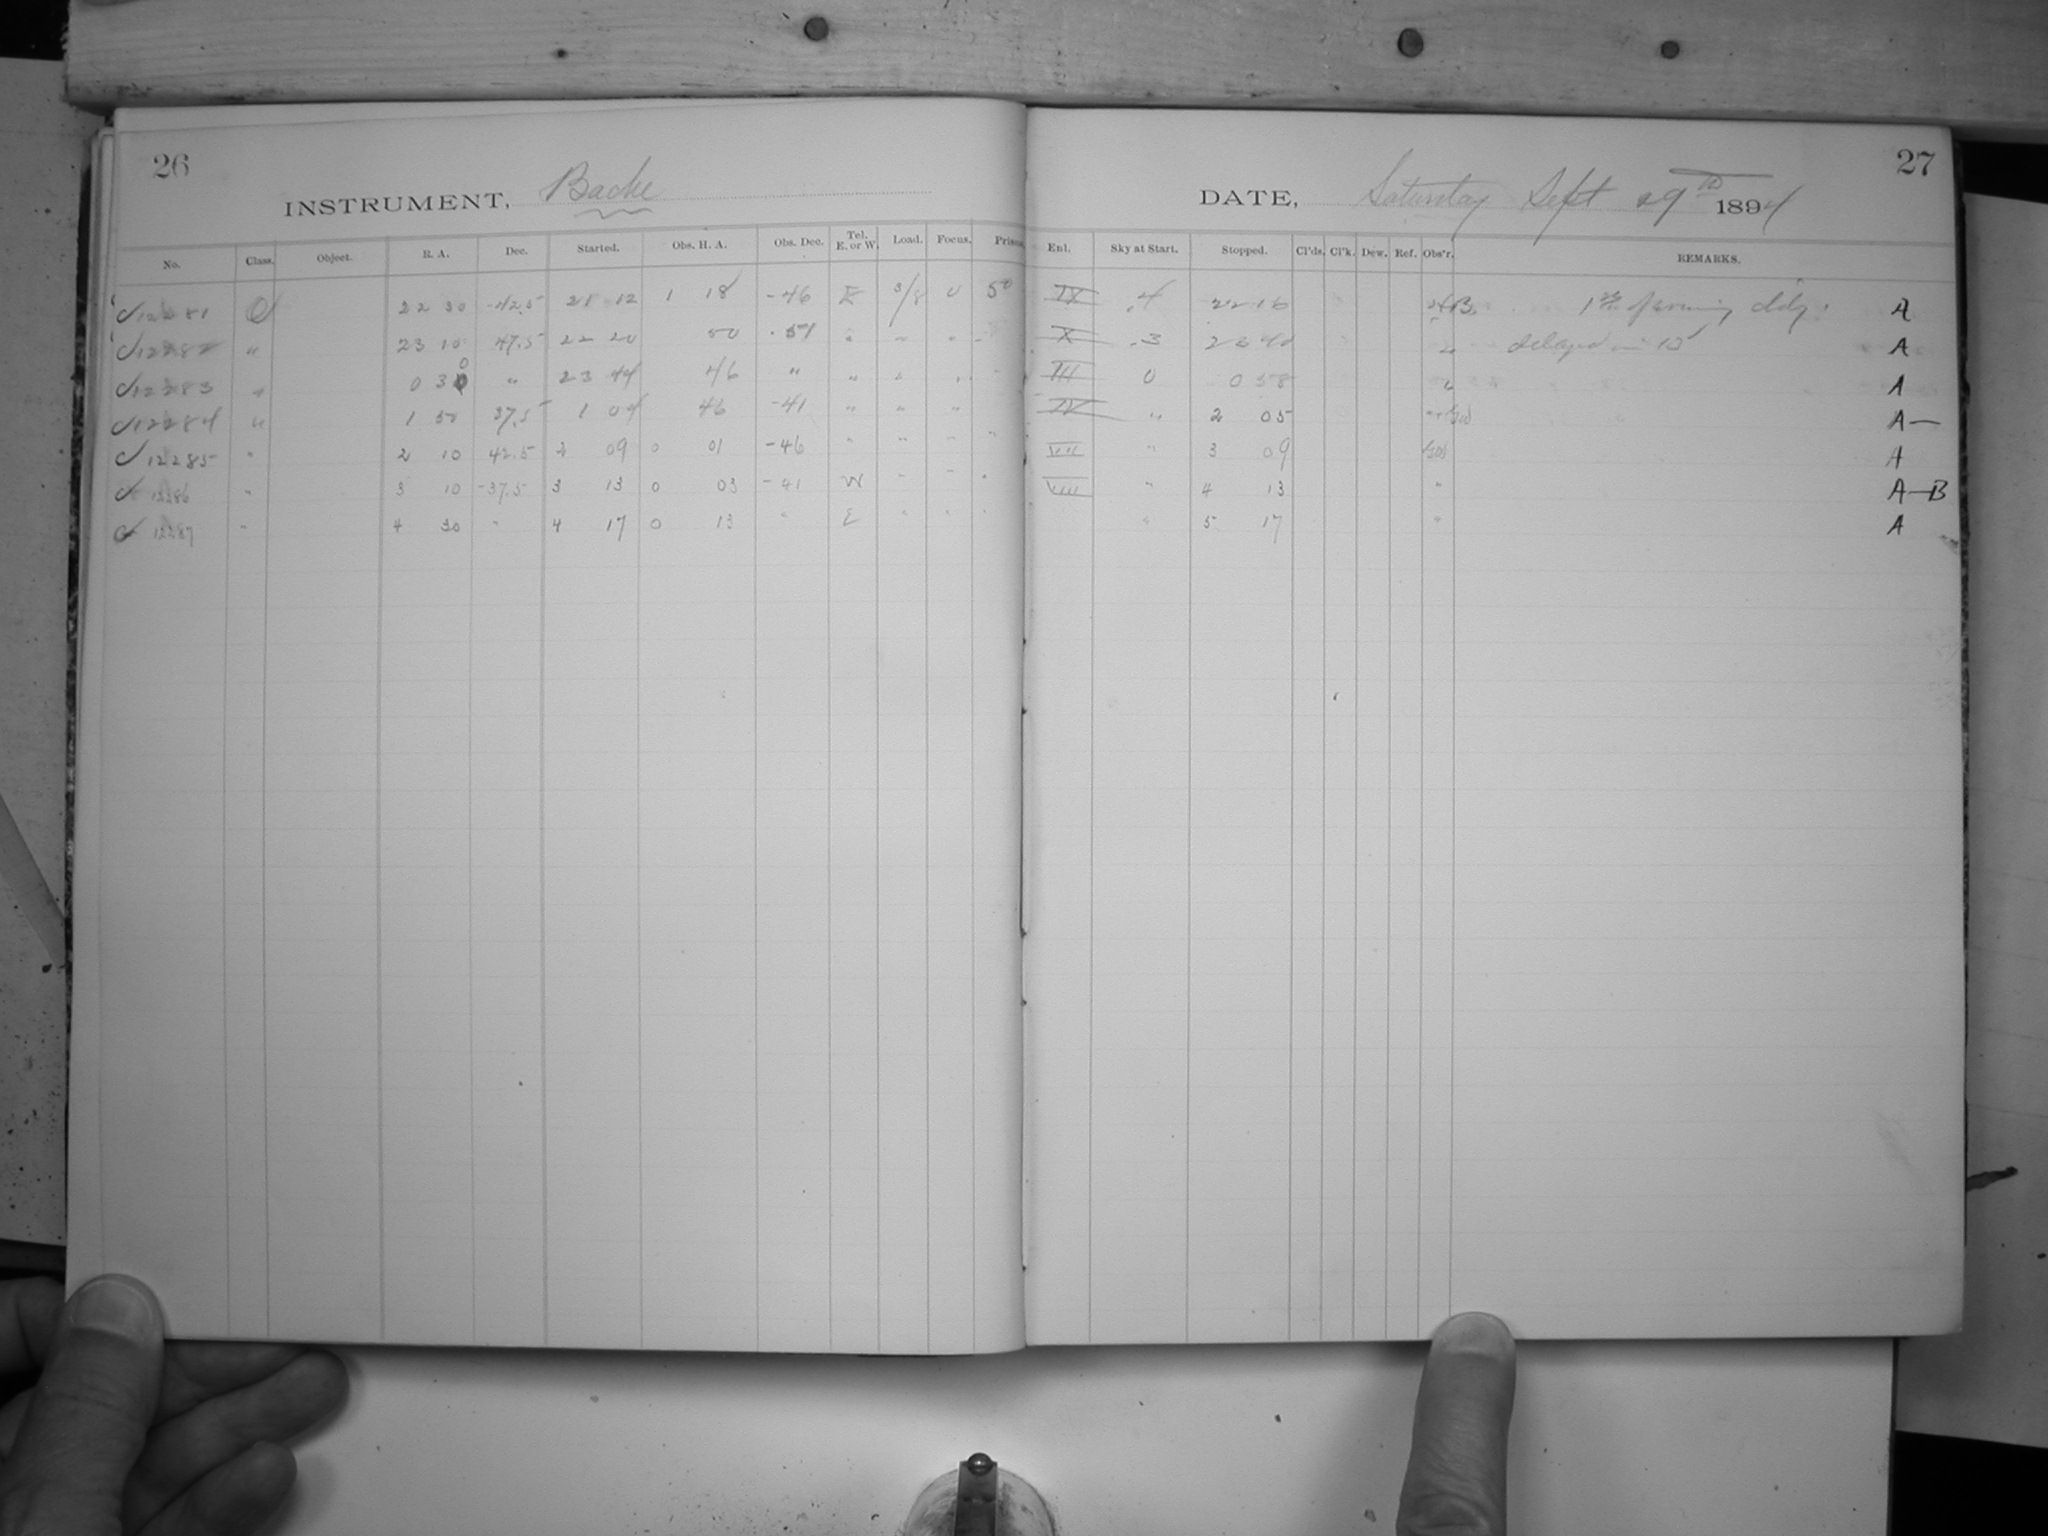 26
INSTRUMENT, Bache
No. Class. Object. R. A. Dec. Started. Obs. H. A. Obs. Dec. Tel. E. or W. Load. Focus. Prism.
12281 O 22 30 -42.5 21 12 1 18 -46 E 3/8 0 50
12282 " 23 10 47.5 22 20 50 51 " " " "
12283 " 0 30 " 23 44 46 " " " "
12284 " 1 50 37.5 1 04 46 -41 " " "
12285 " 2 10 42.5 2 09 0 01 -46 " " " "
12286 " 3 10 -37.5 3 13 0 03 -41 W " " "
12287 " 4 30 " 4 17 0 13 " E " " "
27
DATE, Saturday Sept 29th 1894
Enl. Sky at Start. Stopped. Cl'ds. Cl'k. Dew. Ref. Obs'r. REMARKS.
IX .4 22 16 1st of evening A
X .3 23 40 " delayed 15 A
III 0 0 58 " A
IV " 2 05 A—
VII " 3 09 A
VIII " 4 13 " A—B
" 5 17 " A